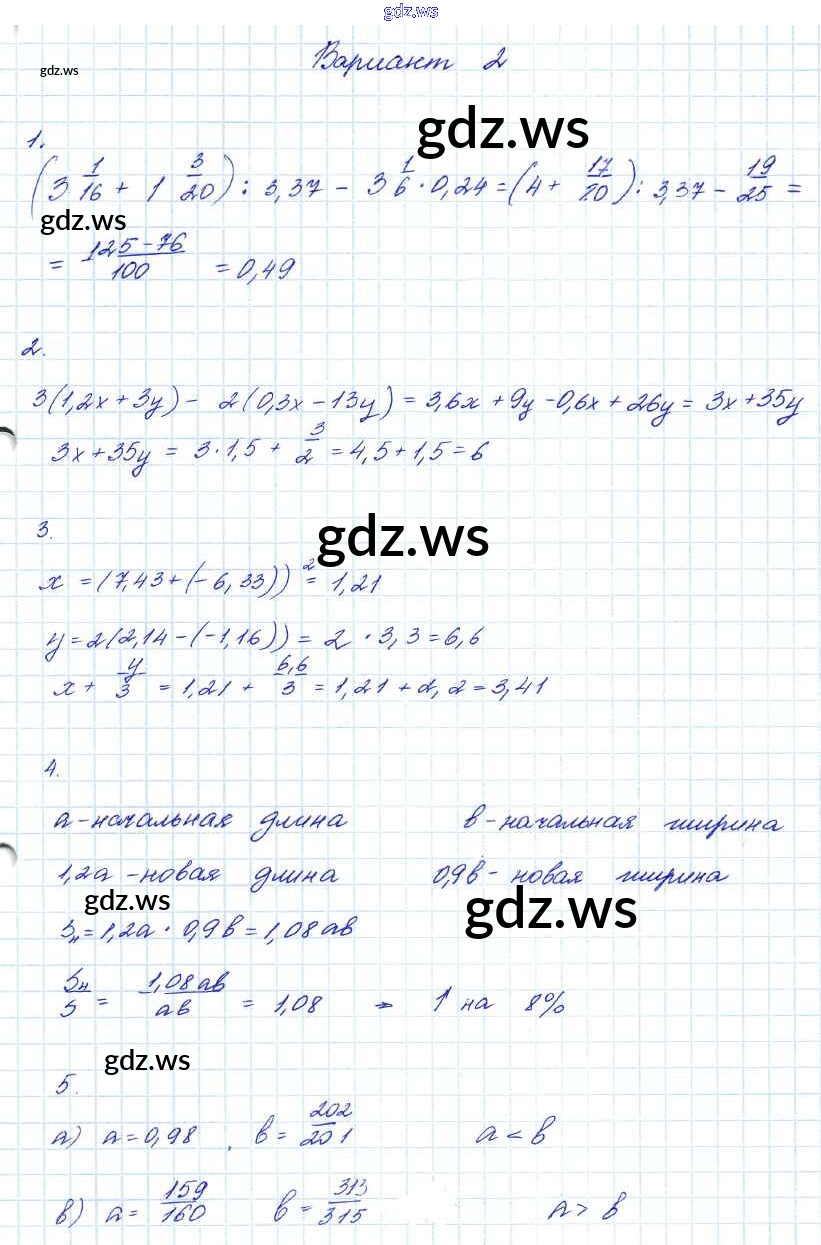 gdz.ws
Вариант 2
gdz.ws
gdz.ws
1.
(3 1/16 + 1 3/20) : 3,37 - 3 1/6 · 0,24 = (4 + 17/20) : 3,37 - 19/25 =
gdz.ws
= 125-76/100 = 0,49
2.
3(1,2x + 3y) - 2(0,3x - 13y) = 3,6x + 9y - 0,6x + 26y = 3x + 35y
3x + 35y = 3 · 1,5 + 3/2 = 4,5 + 1,5 = 6
3.
gdz.ws
x = (7,43 + (-6,33))² = 1,21
y = 2(2,14 - (-1,16)) = 2 · 3,3 = 6,6
x + y/3 = 1,21 + 6,6/3 = 1,21 + 2,2 = 3,41
4.
a - начальная длина в - начальная ширина
1,2a - новая длина 0,9в - новая ширина
gdz.ws
gdz.ws
Sн = 1,2a · 0,9в = 1,08 aв
Sн/S = 1,08 aв/aв = 1,08 → ↑ на 8%
gdz.ws
5.
а) a = 0,98, в = 202/201 a < в
в) a = 159/160 в = 313/315 a > в